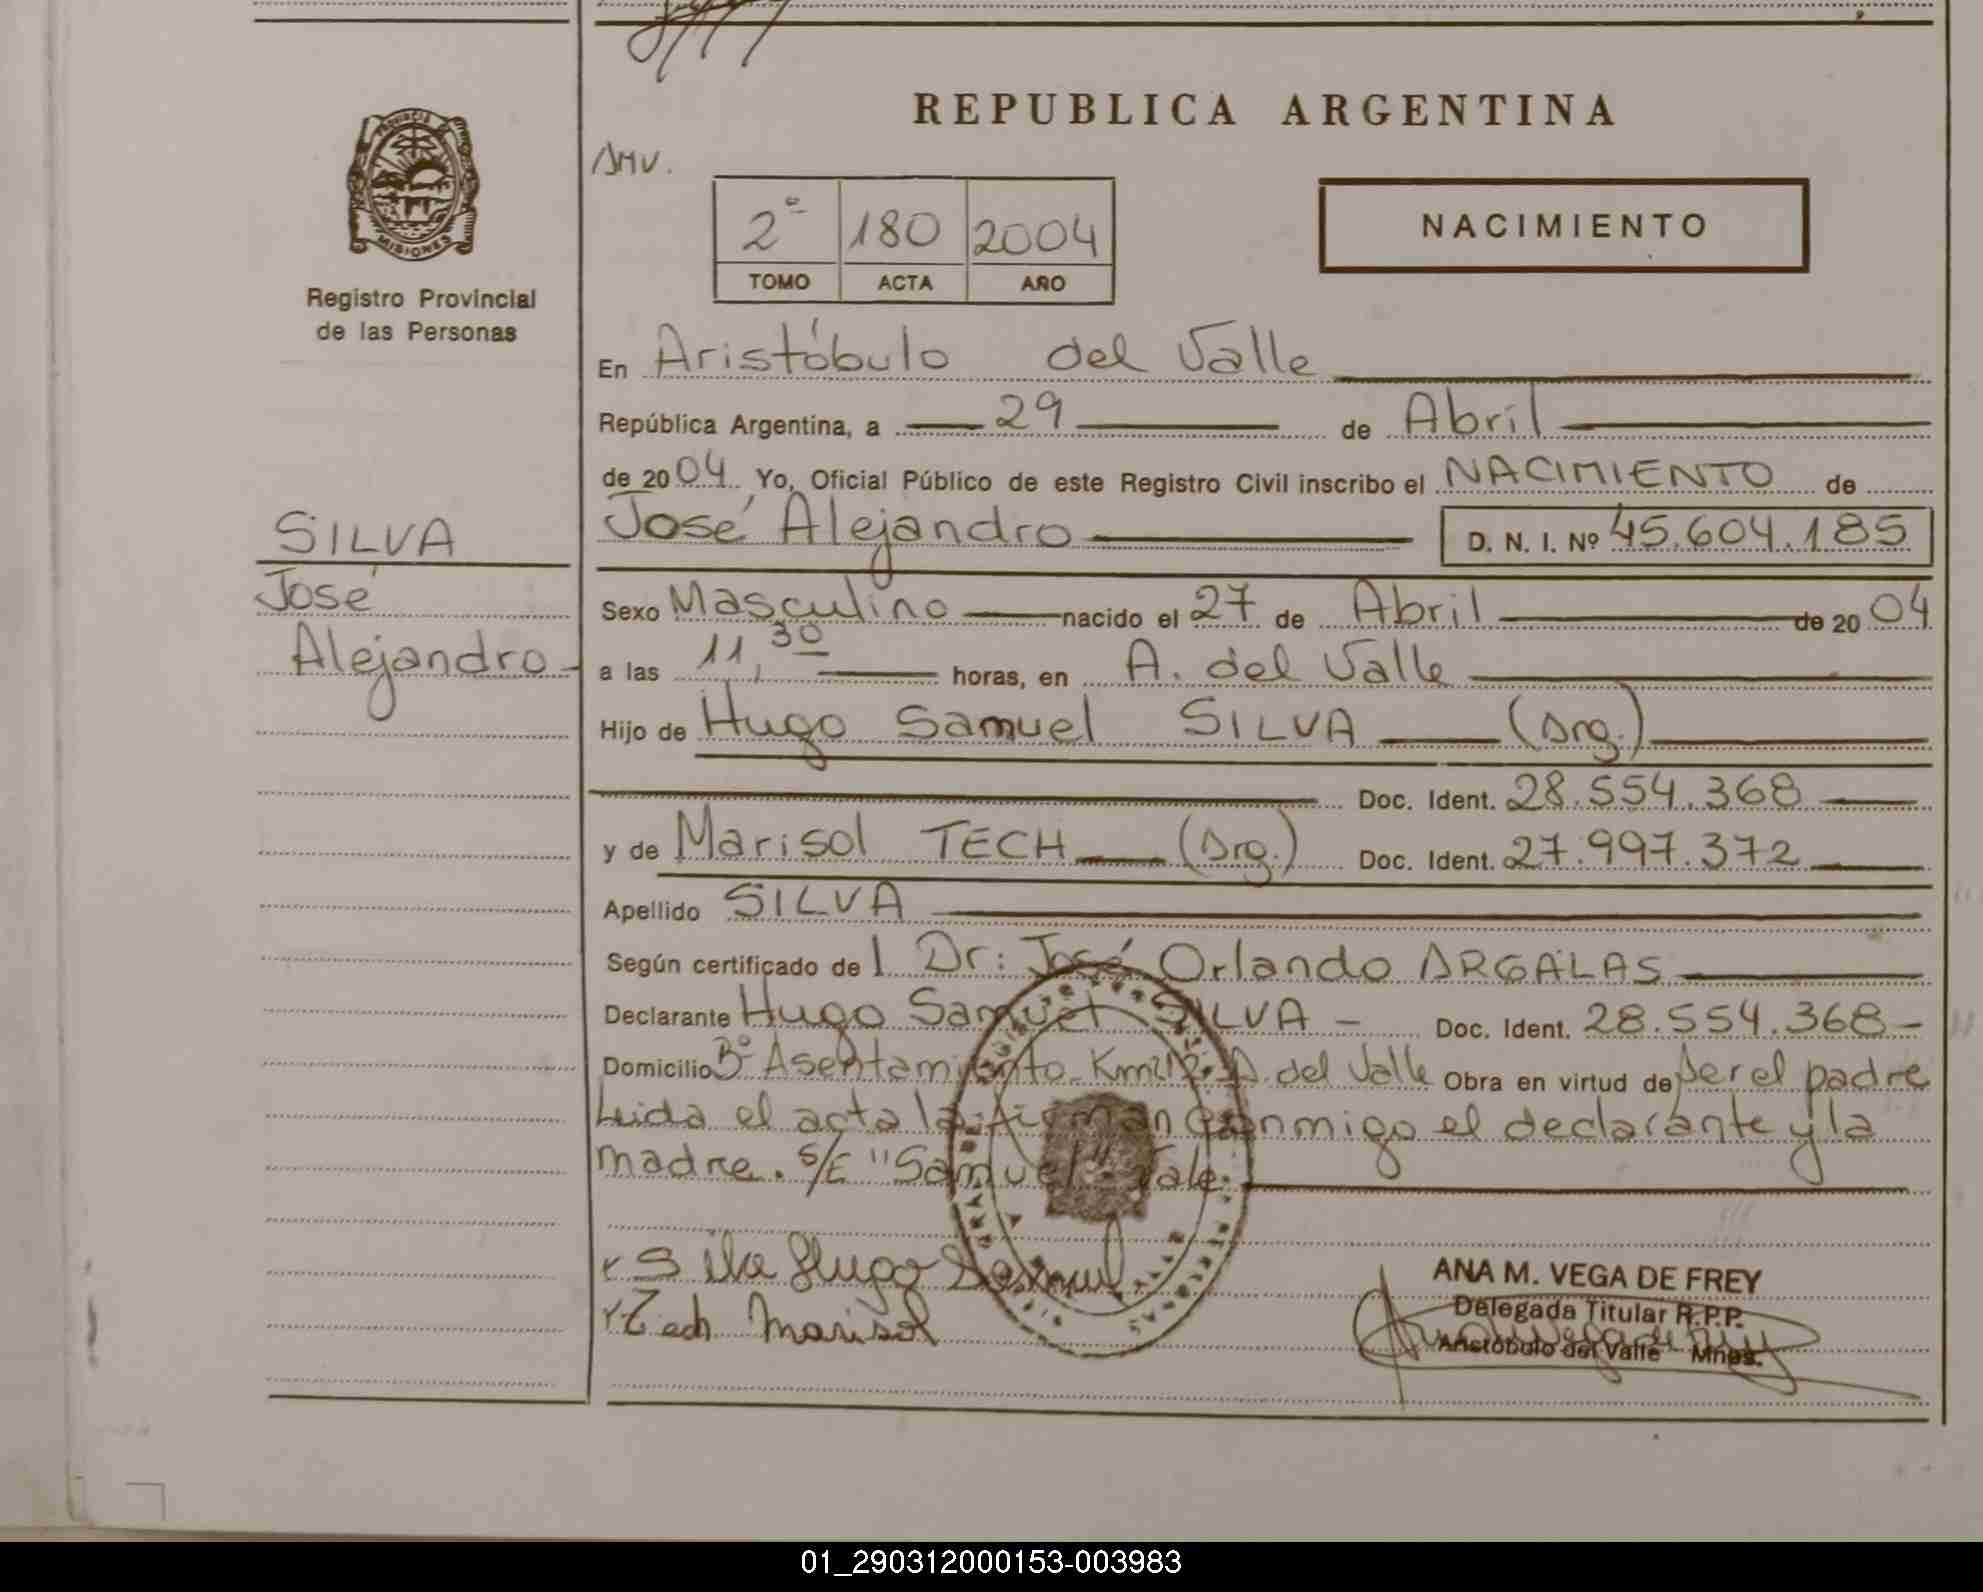 REPUBLICA ARGENTINA
PROVINCIA DE
MISIONES
Registro Provincial
de las Personas
AMV.
2º 180 2004
TOMO ACTA AÑO
NACIMIENTO
En Aristóbulo del Valle
República Argentina, a 29 de Abril
de 2004 Yo, Oficial Público de este Registro Civil inscribo el NACIMIENTO de
José Alejandro D. N. I. Nº 45.604.185
SILVA
José
Alejandro
Sexo Masculino nacido el 27 de Abril de 2004
a las 11,30 horas, en A. del Valle
Hijo de Hugo Samuel SILVA (Arg.)
Doc. Ident. 28.554.368
y de Marisol TECH (Arg.) Doc. Ident. 27.997.372
Apellido SILVA
Según certificado de l Dr: José Orlando ARGALAS
Declarante Hugo Samuel SILVA - Doc. Ident. 28.554.368-
Domicilio Bº Asentamiento- Km212. A. del Valle Obra en virtud de ser el padre
Leida el acta la firman conmigo el declarante y la
madre. S/E "Samuel". Vale.
Silva Hugo Samuel
Tech Marisol
ANA M. VEGA DE FREY
Delegada Titular R.P.P.
Aristóbulo del Valle Mnes.
01_290312000153-003983